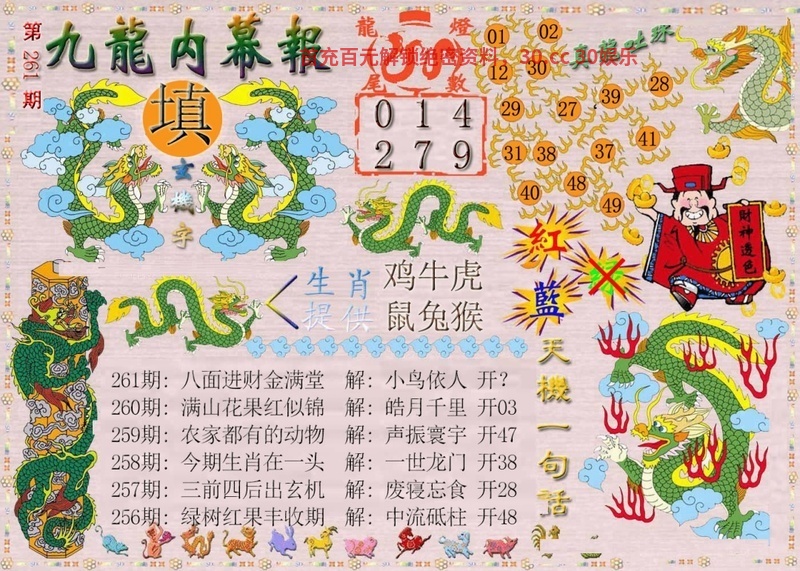 第261期
九龍内幕報
仅充百元解锁绝密资料，30.cc 30娱乐
填
玄機字
龍尾
燈數
0 1 4
2 7 9
真龍吐珠
01 02
12 30
29 27 39 28
31 38 37 41
40 48 49
財神透色
紅
藍
绿
生肖
提供
鸡牛虎
鼠兔猴
天機一句話
261期: 八面进财金满堂 解: 小鸟依人 开?
260期: 满山花果红似锦 解: 皓月千里 开03
259期: 农家都有的动物 解: 声振寰宇 开47
258期: 今期生肖在一头 解: 一世龙门 开38
257期: 三前四后出玄机 解: 废寝忘食 开28
256期: 绿树红果丰收期 解: 中流砥柱 开48